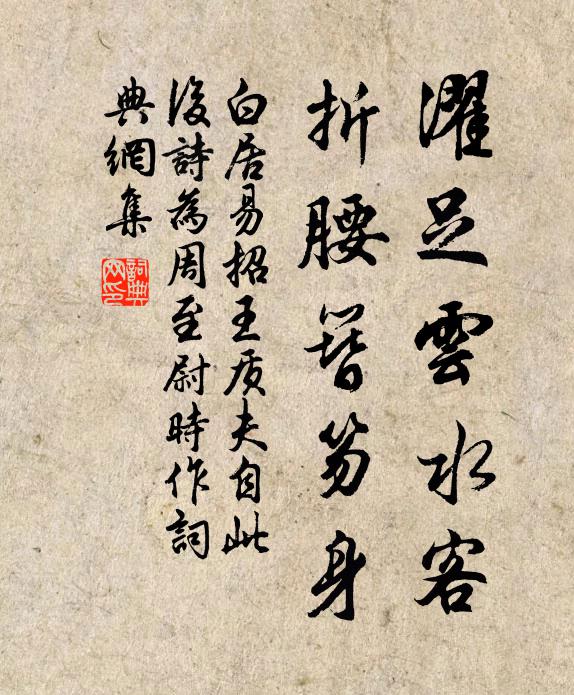 濯足雲水客
折腰簪笏身
白居易招王质夫自此
後詩為周至尉時作詞
典網集
詞典
网印